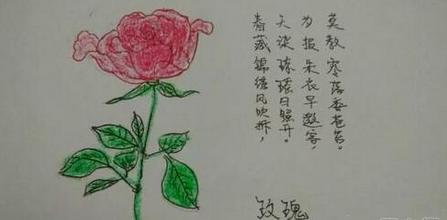 春藏锦绣风吹拆，
天染琼瑶日照开。
为报朱衣早邀客，
莫教零落委苍苔。
玫瑰